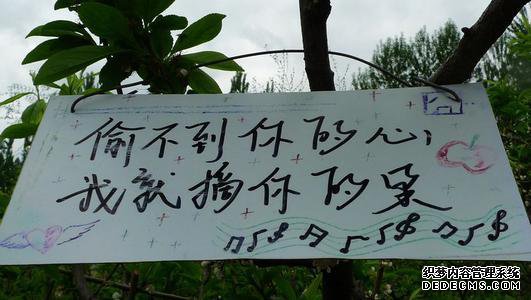 偷不到你的心
我就摘你的果
织梦内容管理系统
DEDECMS.COM